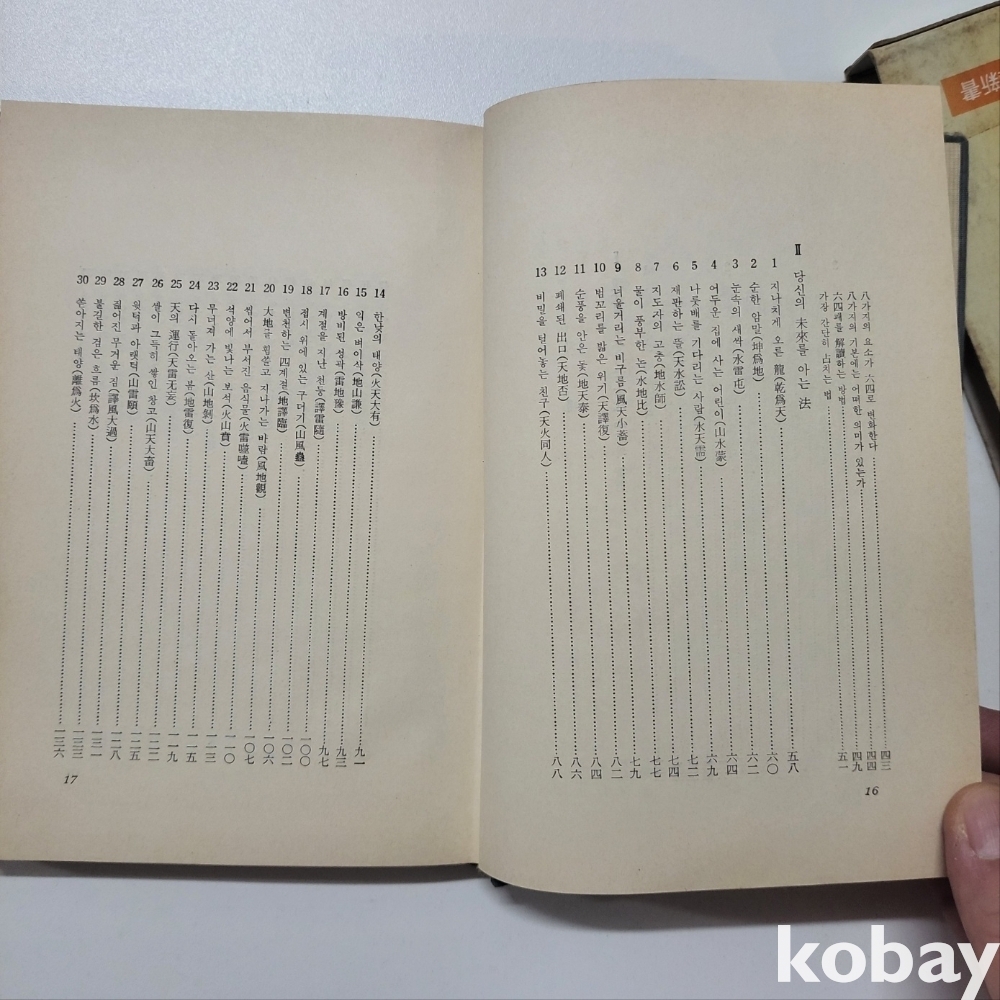 八가지의 요소가 六四로 변화한다 …… 四三
八가지의 기본에는 어떠한 의미가 있는가 …… 四四
六四괘를 解讀하는 방법 …… 四九
가장 간단히 占치는 법 …… 五一
Ⅱ 당신의 未來를 아는 法
1 지나치게 오른 龍(乾爲天) …… 五八
2 순한 암말(坤爲地) …… 六〇
3 눈속의 새싹(水雷屯) …… 六二
4 어두운 집에 사는 어린이(山水蒙) …… 六四
5 나룻배를 기다리는 사람(水天需) …… 六九
6 재판하는 뜰(天水訟) …… 七二
7 지도자의 고충(地水師) …… 七四
8 물이 풍부한 논(水地比) …… 七七
9 너울거리는 비구름(風天小畜) …… 七九
10 범꼬리를 밟은 위기(天譯復) …… 八二
11 순풍을 안은 돛(地天泰) …… 八四
12 폐쇄된 出口(天地否) …… 八六
13 비밀을 털어놓는 친구(天火同人) …… 八八
16
14 한낮의 태양(火天大有) …… 九一
15 익은 벼이삭(地山謙) …… 九三
16 방비된 성곽(雷地豫) …… 九七
17 계절을 지난 천둥(譯雷隨) …… 一〇〇
18 접시 위에 있는 구더기(山風蠱) …… 一〇二
19 변천하는 四계절(地譯臨) …… 一〇六
20 大地를 휩쓸고 지나가는 바람(風地觀) …… 一〇七
21 씹어서 부서진 음식물(火雷噬嗑) …… 一一〇
22 석양에 빛나는 보석(火山賁) …… 一一三
23 무너져 가는 산(山地剝) …… 一一五
24 다시 돌아오는 봄(地雷復) …… 一一九
25 天의 運行(天雷无妄) …… 一二二
26 쌀이 그득히 쌓인 창고(山天大畜) …… 一二五
27 윗턱과 아랫턱(山雷頤) …… 一二八
28 짊어진 무거운 짐(譯風大過) …… 一三一
29 불길한 검은 흐름(坎爲水) …… 一三三
30 쏟아지는 태양(離爲火) …… 一三六
17
新書
kobay